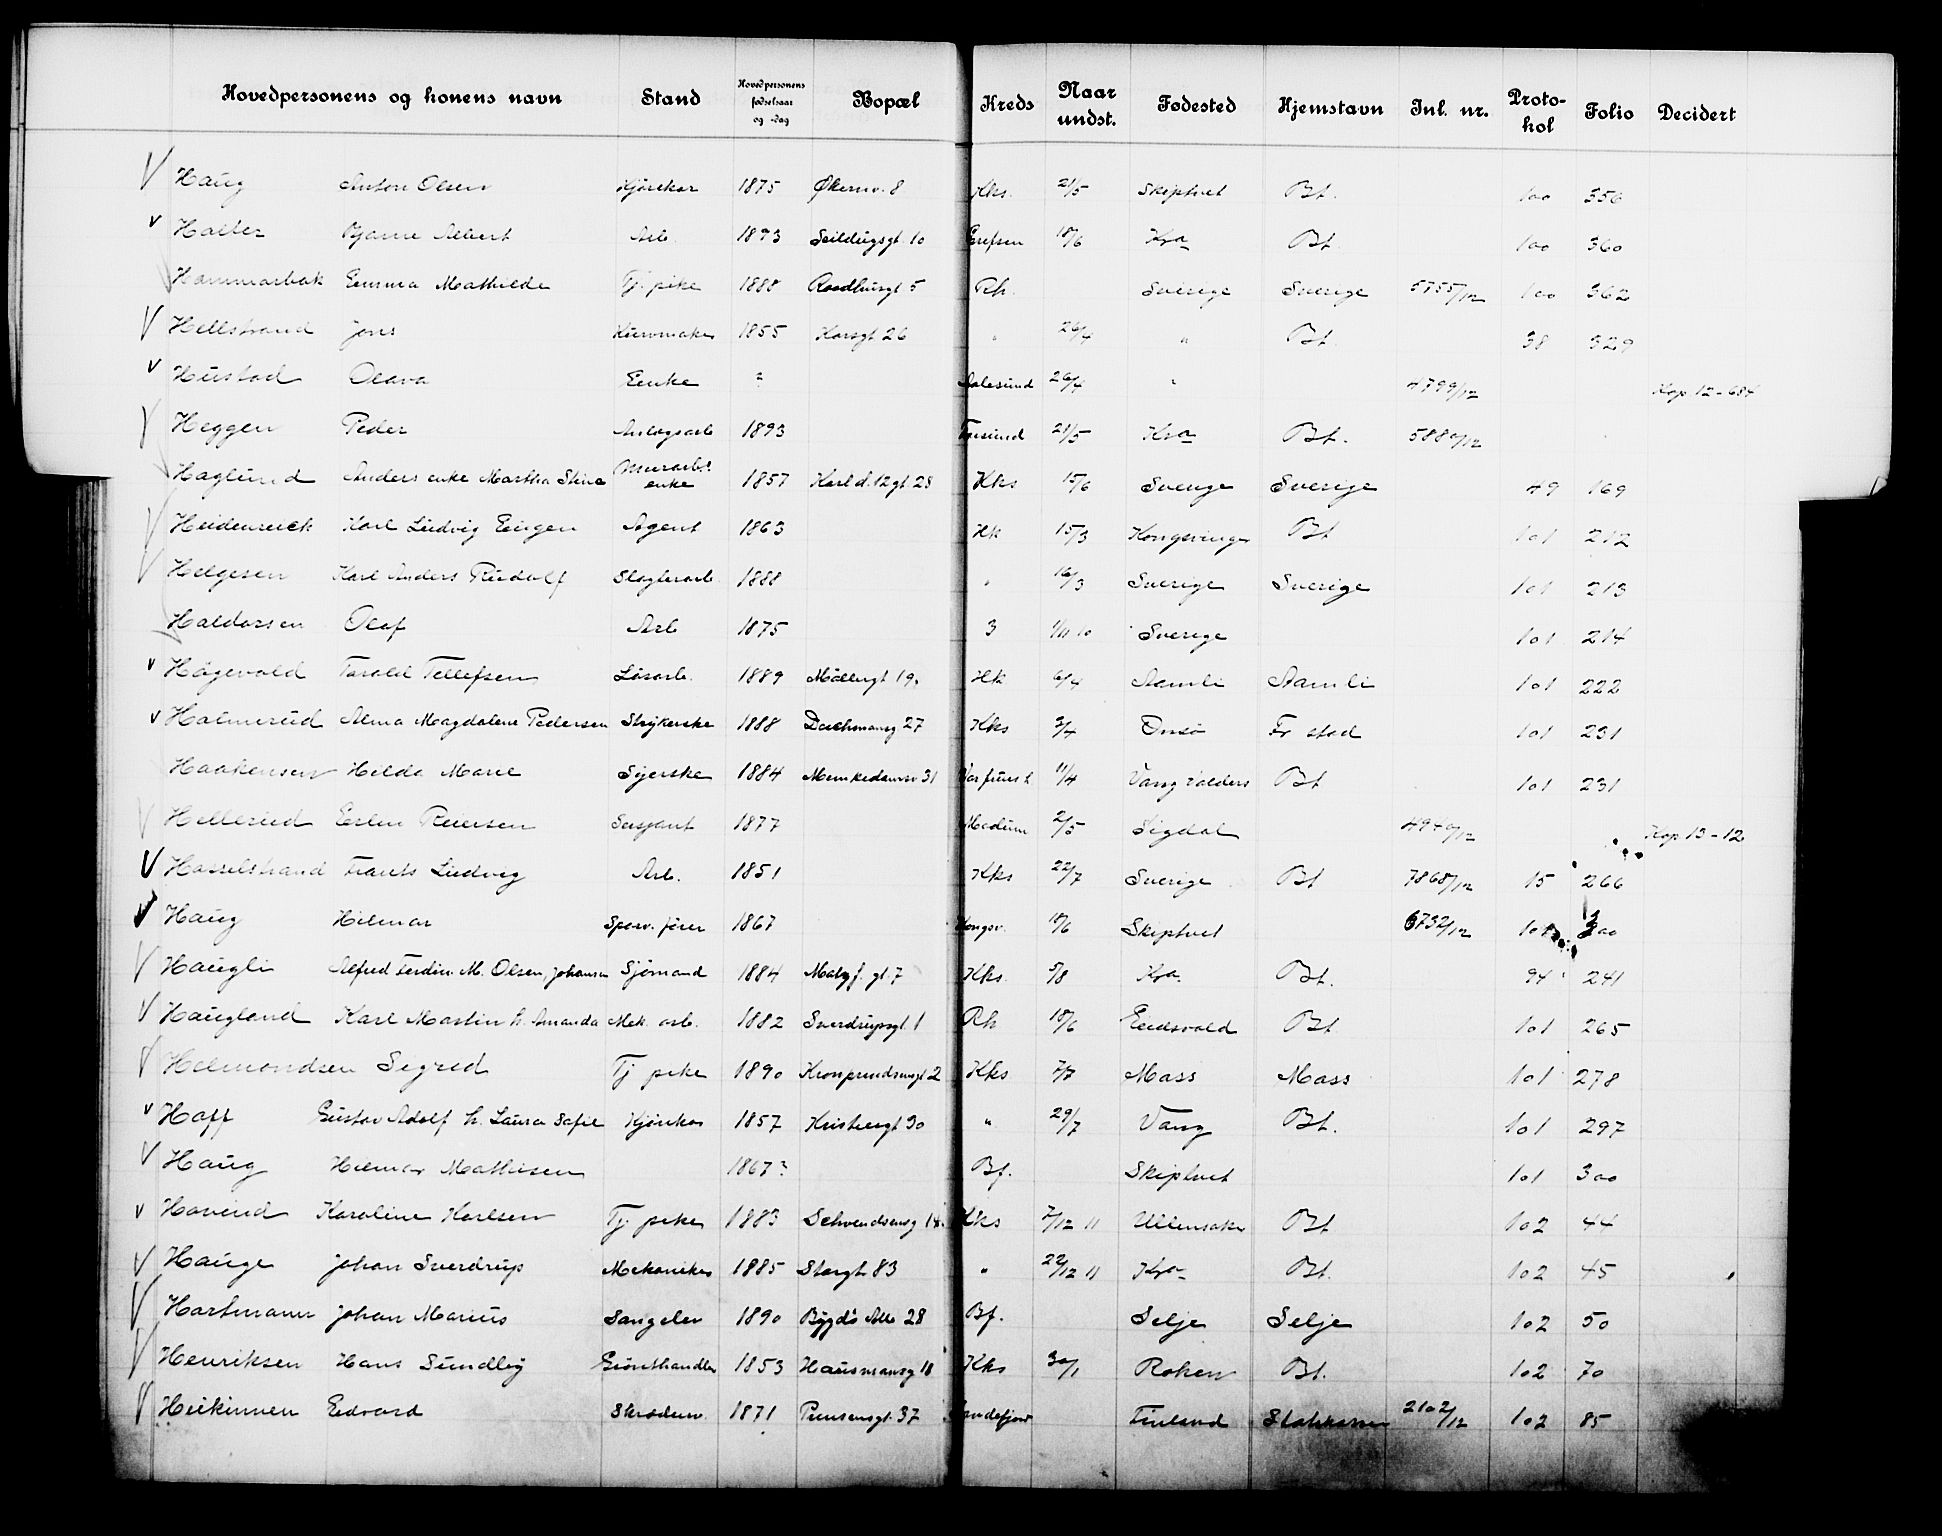 Hovedpersonens og konens navn Stand Hovedpersonens fødselsaar og -dag Bopæl Kreds Naar undst. Fødested Hjemstavn Inl. nr. Protokol Folio Decidert
Haug Anton Olsen Kjørekar 1875 Økernv. 8 Kks. 21/5 Skiptvet Bt. 100 356
Halter Bjarne Albert Arb. 1893 Seildugsgt. 10 Grefsen 18/6 Kra Bt. 100 360
Hammarbak Emma Mathilde Tj. pike 1888 Raadhusgt 5 Rh. Sverige Sverige 5755/12 100 362
Hellstrand Jons Kurvmaker 1855 Korsgt 26 " 26/4 " Bt. 38 329
Hustad Olava Enke ? Aalesund 26/4 " 4799/12 Kop 12-684
Heggen Peder Anlegsarb 1893 21/5 Kra Bt. 5880/12
Haglund Anders enke Martha Stina Murarb. enke 1857 Karl d. 12 gt 28 Kks 15/6 Sverige Sverige 49 169
Heidenreick Karl Ludvig Eugen Agent 1863 Kk 15/3 Kongsvinger Bt 101 212
Helgesen Karl Anders Rudolf Slagterarb. 1888 " 16/3 Sverige Sverige 101 213
Haldorsen Olaf Arb 1875 3 1/11 10 Sverige 101 214
Hågevold Tarald Tellefsen Løsarb. 1889 Møllergt 19. Kk 6/4 Aamli Aamli 101 222
Halmerud Alma Magdalene Pedersen Strykerske 1888 Daehmansg 27 Kks 3/4 Onsø Fr stad 101 231
Haakensen Hilda Marie Syerske 1884 Munkedamsv 31 Vor frues h 11/4 Vang Valders Bt 101 231
Hellerud Erlin Reiersen Sersjant 1877 Modum 2/5 Sigdal 4940/12 Kop 13-12
Hasselstrand Frants Ludvig Arb. 1851 Kks 22/7 Sverige Bt 7868/12 15 266
Haug Hilmar Sporv. fører 1867 Kongsv. 18/6 Skiptvet 6732/12 101 300
Haugli Alfred Ferdin M. Olsen, Johansen Sjømand 1884 Kks. 5/8 Kra. Bt. 94 241
Haugland Karl Martin h. Amanda Mek. arb. 1882 Sverdrupsgt. 1 Rh 18/6 Eidsvold Bt 101 265
Helmondsen Sigrid Tj pike 1890 Kronprindsensgt 2 Kks 7/7 Moss Moss 101 278
Hoff Gustav Adolf h. Laura Sofie Kjørekar 1857 Kristiensgt 30 " 29/7 Vang Bt. 101 297
Haug Hilmar Mathisen 1867? Bf. Skiptvet 101 300
Hovind Karoline Karlsen Tj. pike 1883 Schvendsensg 14. Kks 7/12 11 Ullensaker Bt 102 44
Hauge Johan Sverdrup Mekaniker 1885 Storgt 83 " 22/12 11 Kra Bt. 102 45
Hartmann Johan Marius Sangelev 1890 Bygdø Alle 28 Bf. Selje Selje 102 50
Henriksen Hans Sundby Grønthandler 1853 Hausmansg 18 Kks 30/1 Røken Bt. 102 70
Heikinnen Edvard Skrædersv. 1871 Prinsensgt. 37 Sandefjord Finland 2102/12 102 85